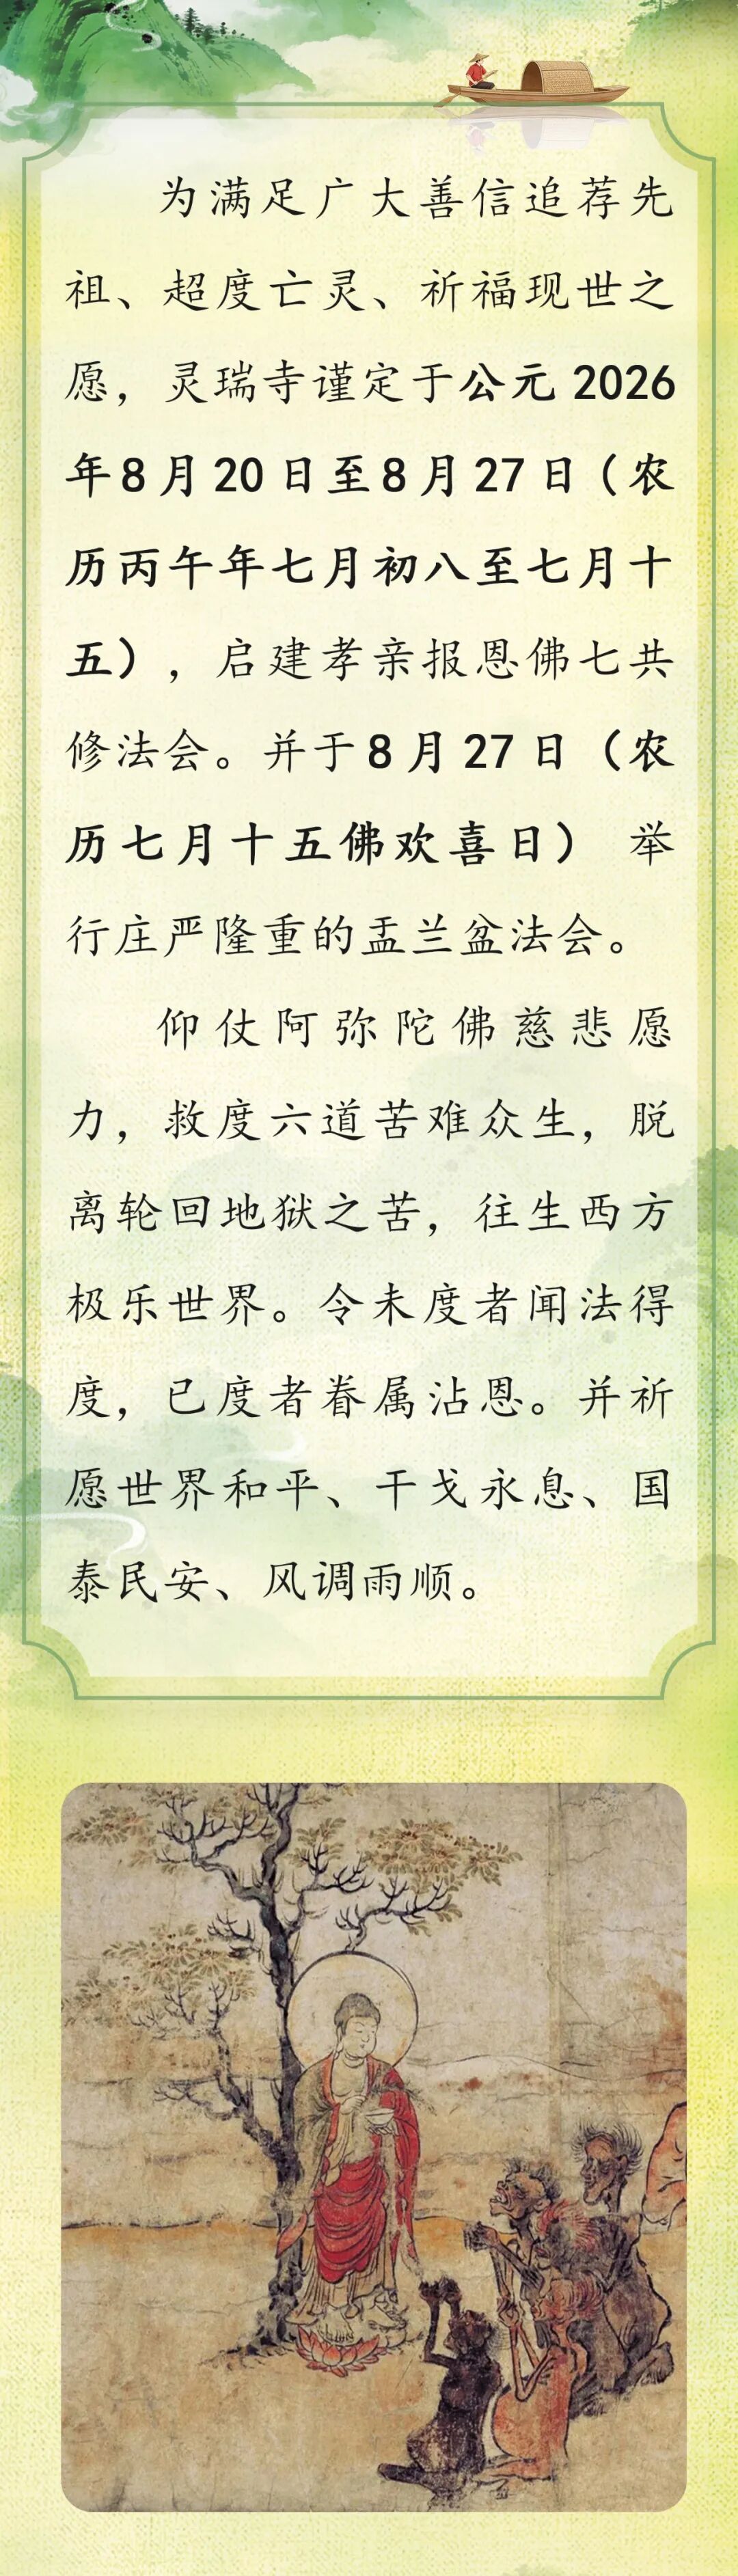 为满足广大善信追荐先
祖、超度亡灵、祈福现世之
愿，灵瑞寺谨定于公元 2026
年8月20日至8月27日（农
历丙午年七月初八至七月十
五），启建孝亲报恩佛七共
修法会。并于8月27日（农
历七月十五佛欢喜日） 举
行庄严隆重的盂兰盆法会。
仰仗阿弥陀佛慈悲愿
力，救度六道苦难众生，脱
离轮回地狱之苦，往生西方
极乐世界。令未度者闻法得
度，已度者眷属沾恩。并祈
愿世界和平、干戈永息、国
泰民安、风调雨顺。